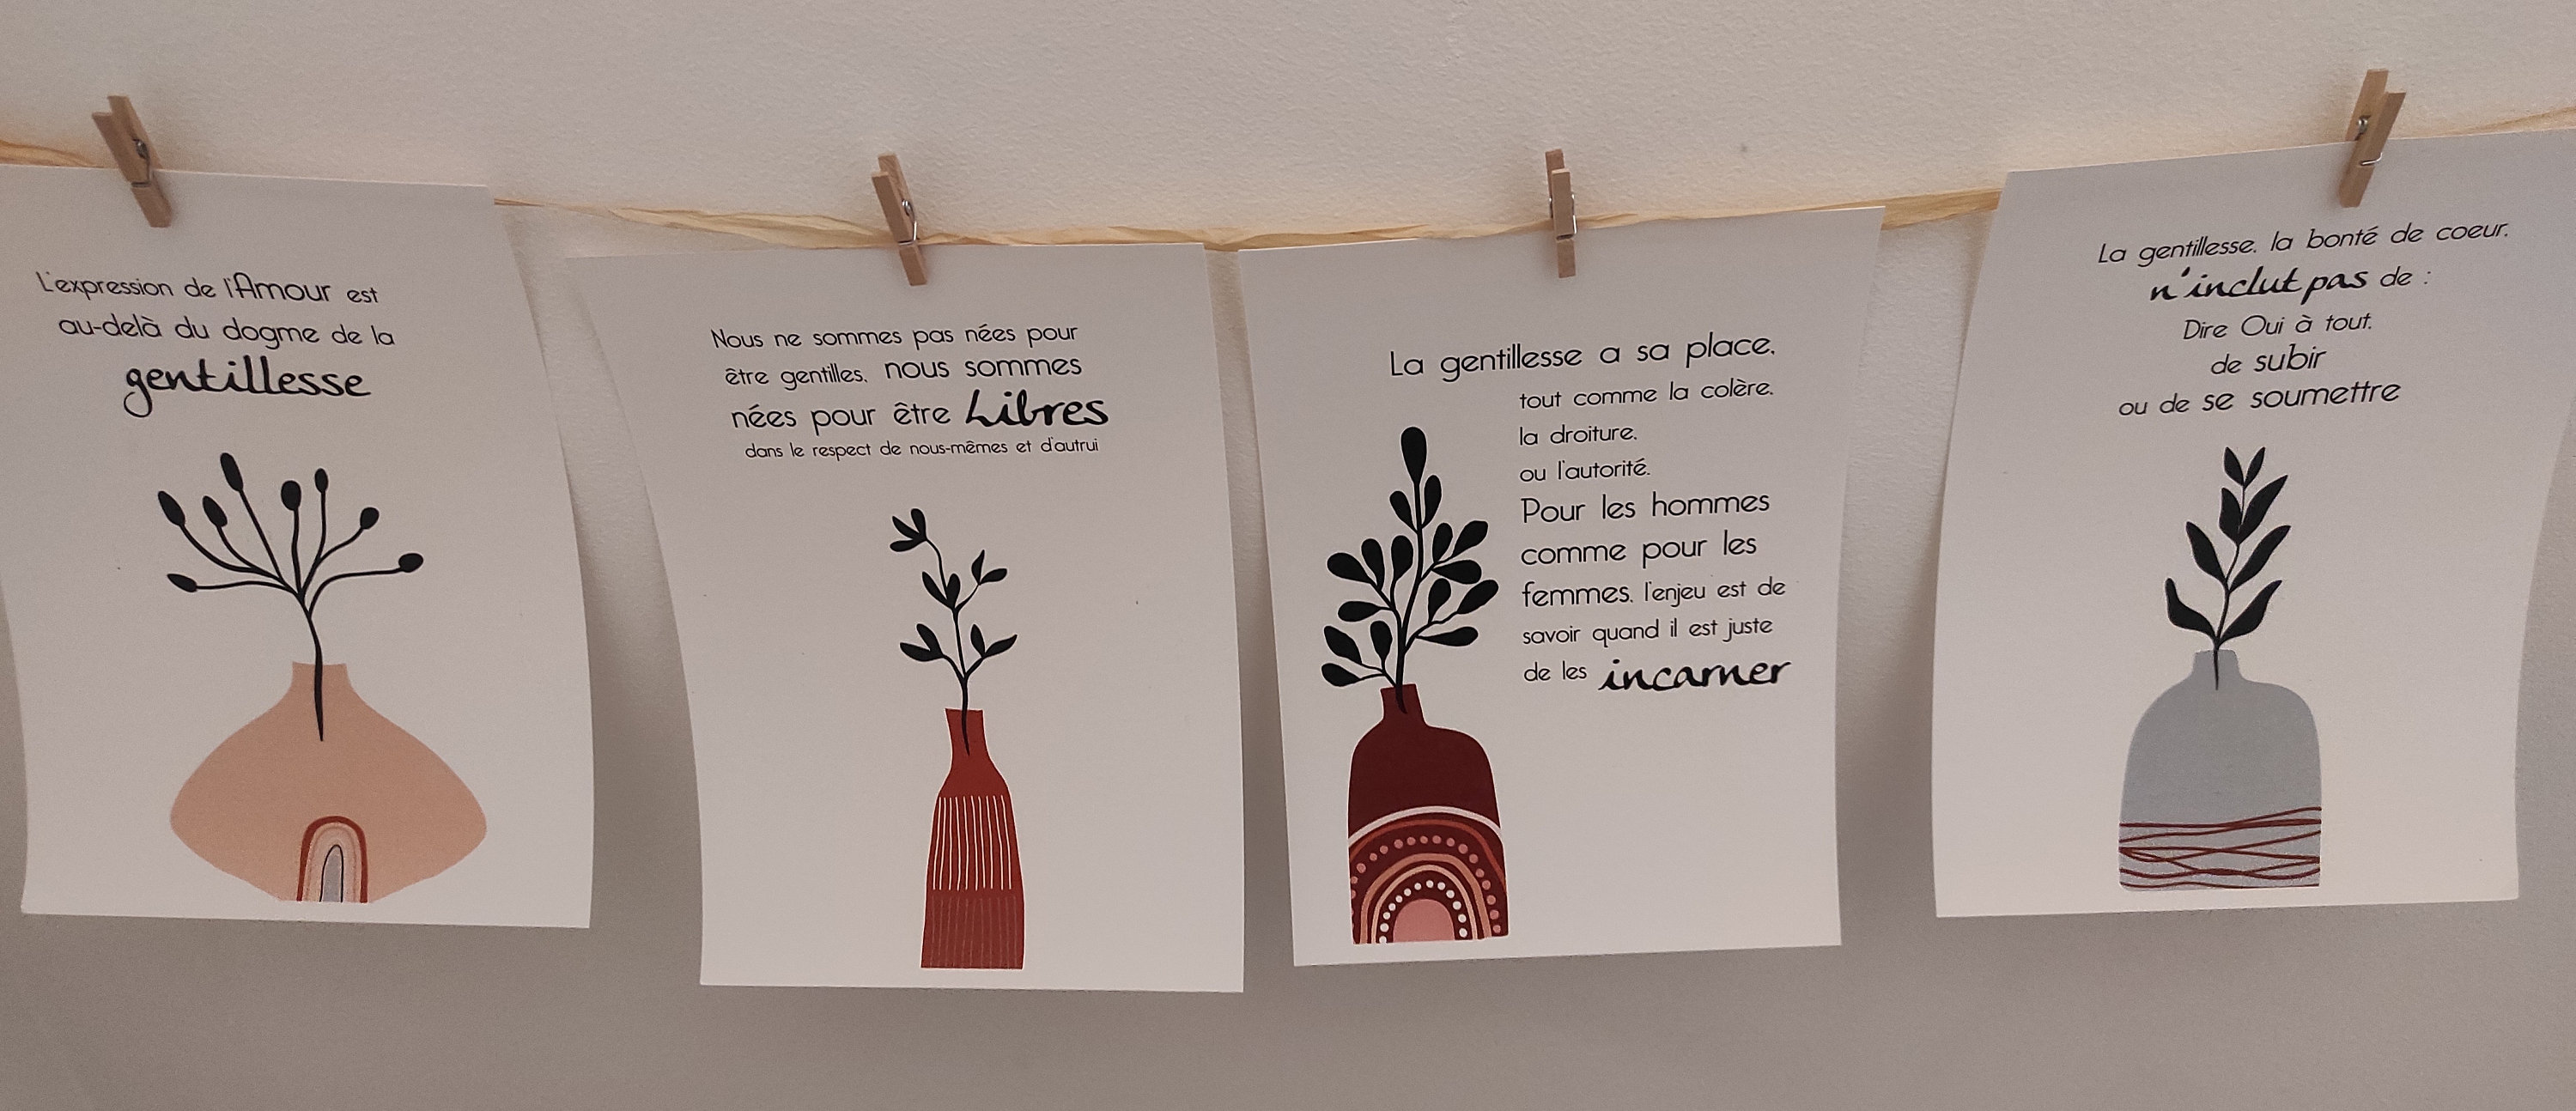 L'expression de l'Amour est
au-delà du dogme de la
gentillesse
Nous ne sommes pas nées pour
être gentilles, nous sommes
nées pour être Libres
dans le respect de nous-mêmes et d'autrui
La gentillesse a sa place,
tout comme la colère,
la droiture,
ou l'autorité.
Pour les hommes
comme pour les
femmes, l'enjeu est de
savoir quand il est juste
de les incarner
La gentillesse, la bonté de coeur,
n'inclut pas de :
Dire Oui à tout,
de subir
ou de se soumettre